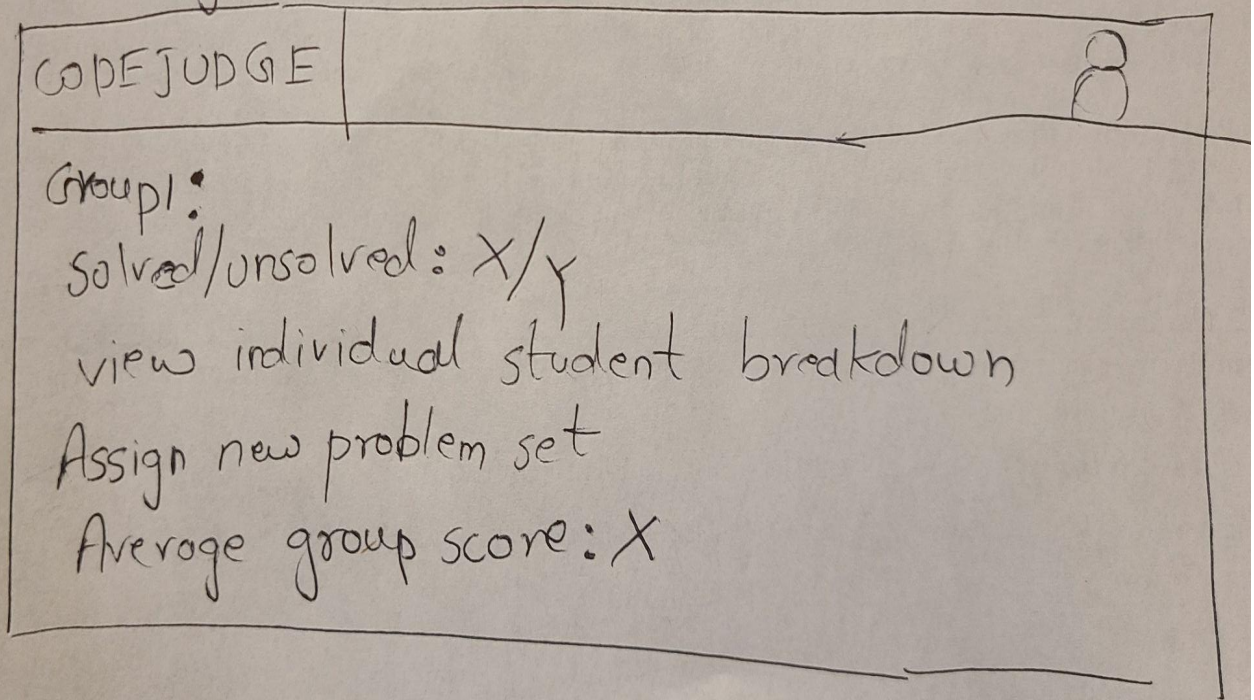 CODEJUDGE
Group1:
solved/unsolved: X/Y
view individual student breakdown
Assign new problem set
Average group score: X